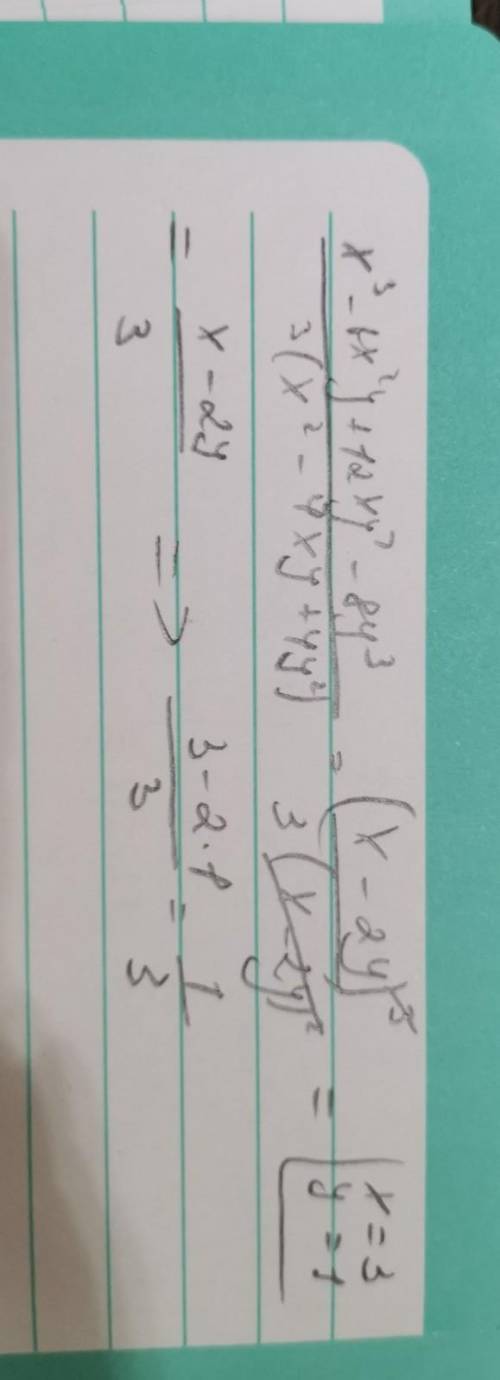 x³ - 6x²y + 12xy² - 8y³ / 3(x² - 4xy + 4y²) = (x - 2y)³ / 3(x - 2y)² = | x = 3 y = 1
= x - 2y / 3 => 3 - 2·1 / 3 = 1 / 3